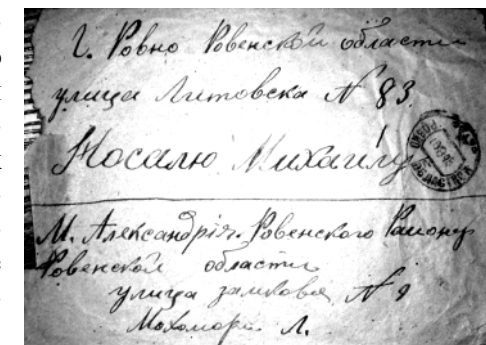 г. Ровно Ровенской области
улица Литовска № 83
Носалю Михаилу
РОВНО
М. Александрія. Ровенского Району
Ровенской области
улица замкова № 9
Мохомора Л.